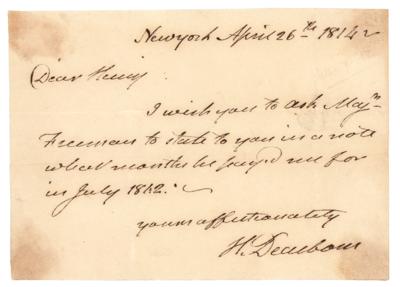 Newyork April 26th 1814
Dear Henry
I wish you to ask Majr
Freeman to state to you in a note
what months he pay'd me for
in July 1812.
yours affectionately
H. Dearborn